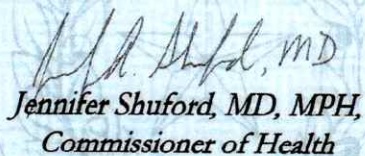 Shuford, MD
Jennifer Shuford, MD, MPH,
Commissioner of Health